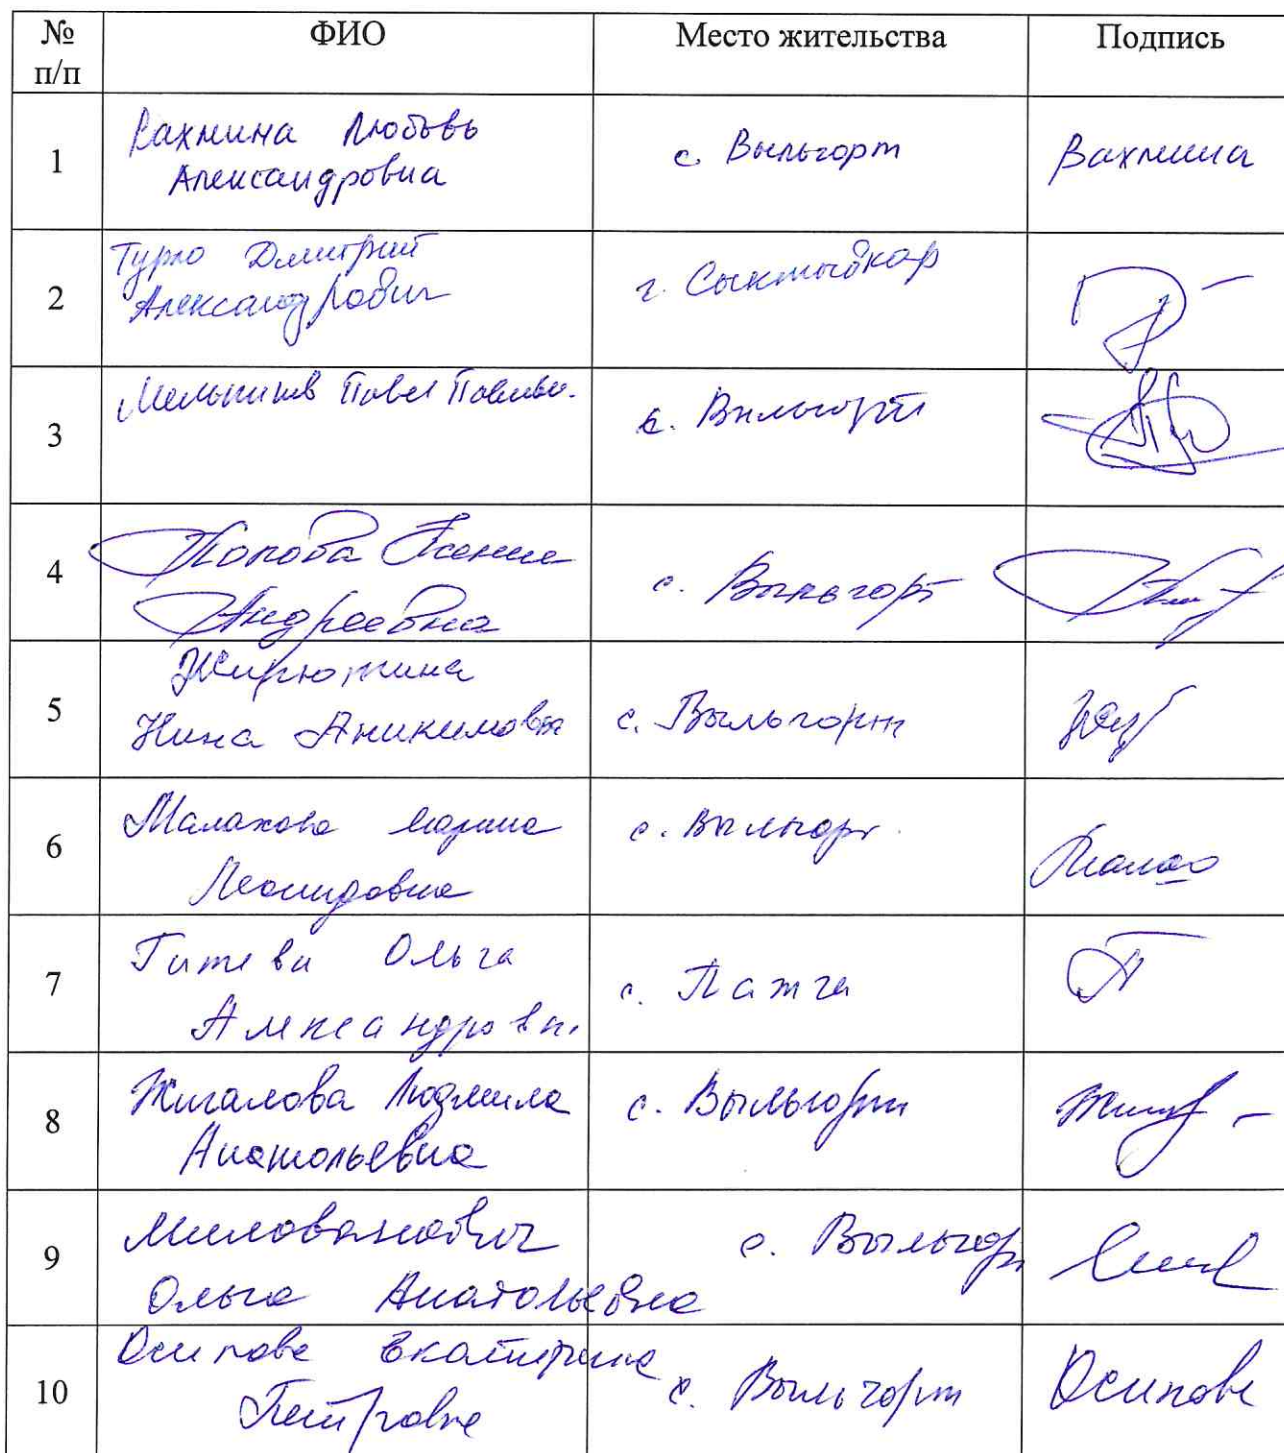 № п/п ФИО Место жительства Подпись
1 Вахнина Любовь Александровна с. Выльгорт Вахнина
2 Турло Дмитрий Александрович г. Сыктывкар
3 Мельников Павел Павлови. с. Выльгорт
4 Попова Ксения Андреевна с. Выльгорт
5 Жирютина Нина Аникимовна с. Выльгорт
6 Малахова Марина Леонидовна с. Выльгорт
7 Ольга Александровн. с. Пажга
8 Жигалова Людмила Анатольевна с. Выльгорт
9 Милованович Ольга Анатольевна с. Выльгорт
10 Осипова Екатерина Петровна с. Выльгорт Осипова